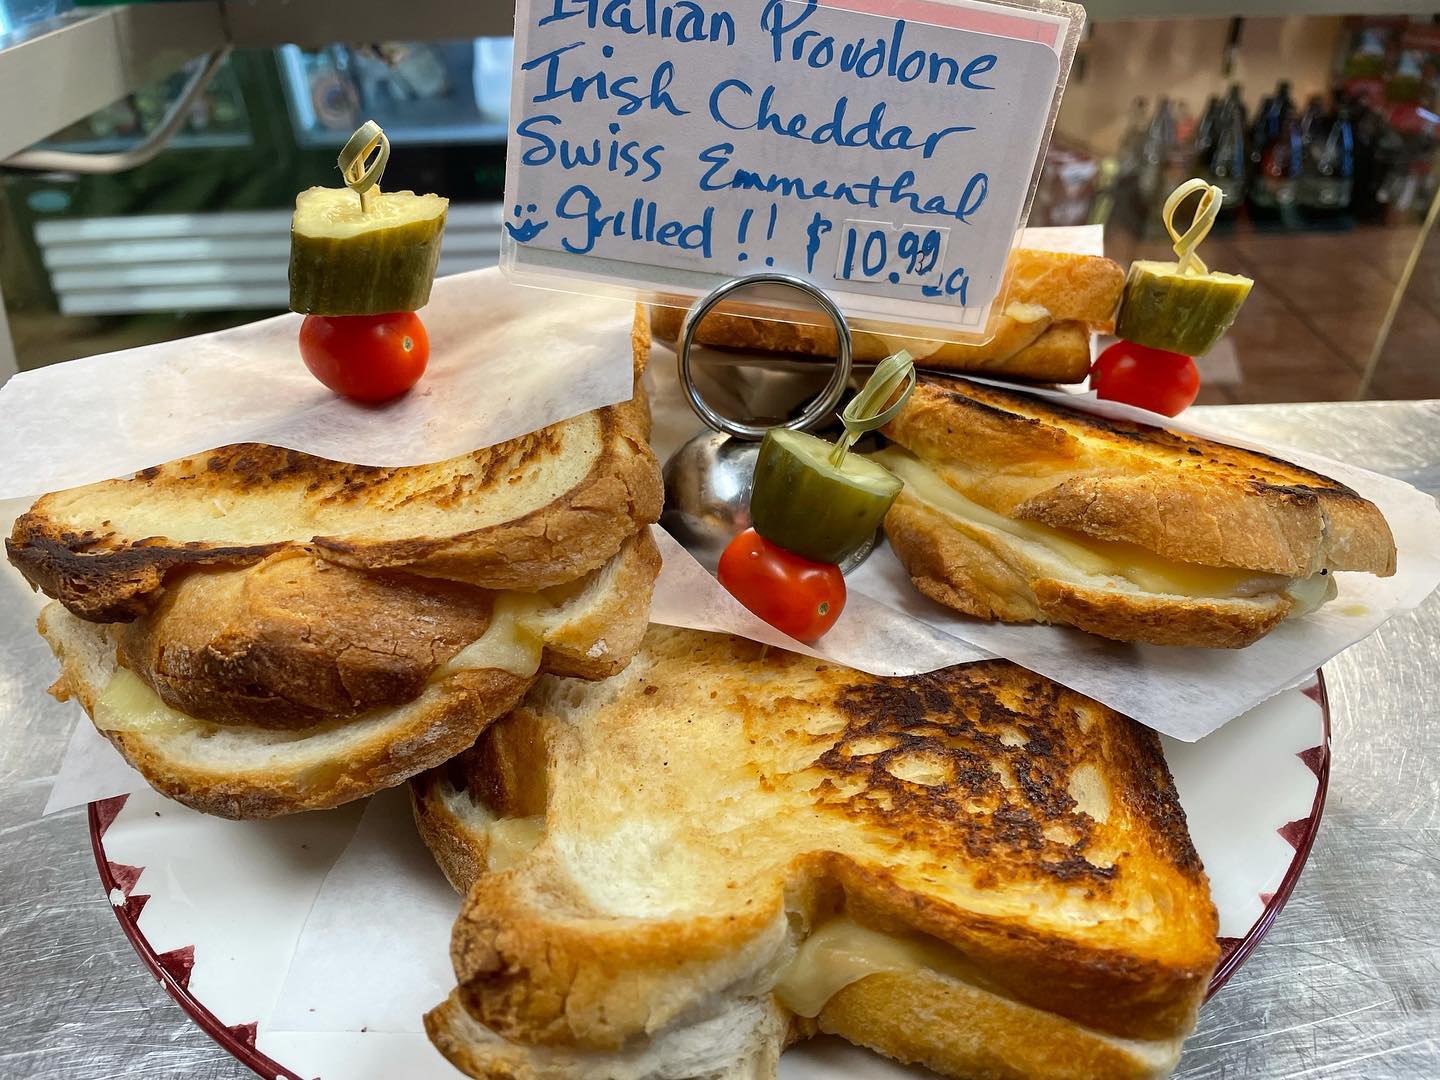 Italian Provolone
Irish Cheddar
Swiss Emmenthal
Grilled !! $10.99 ea